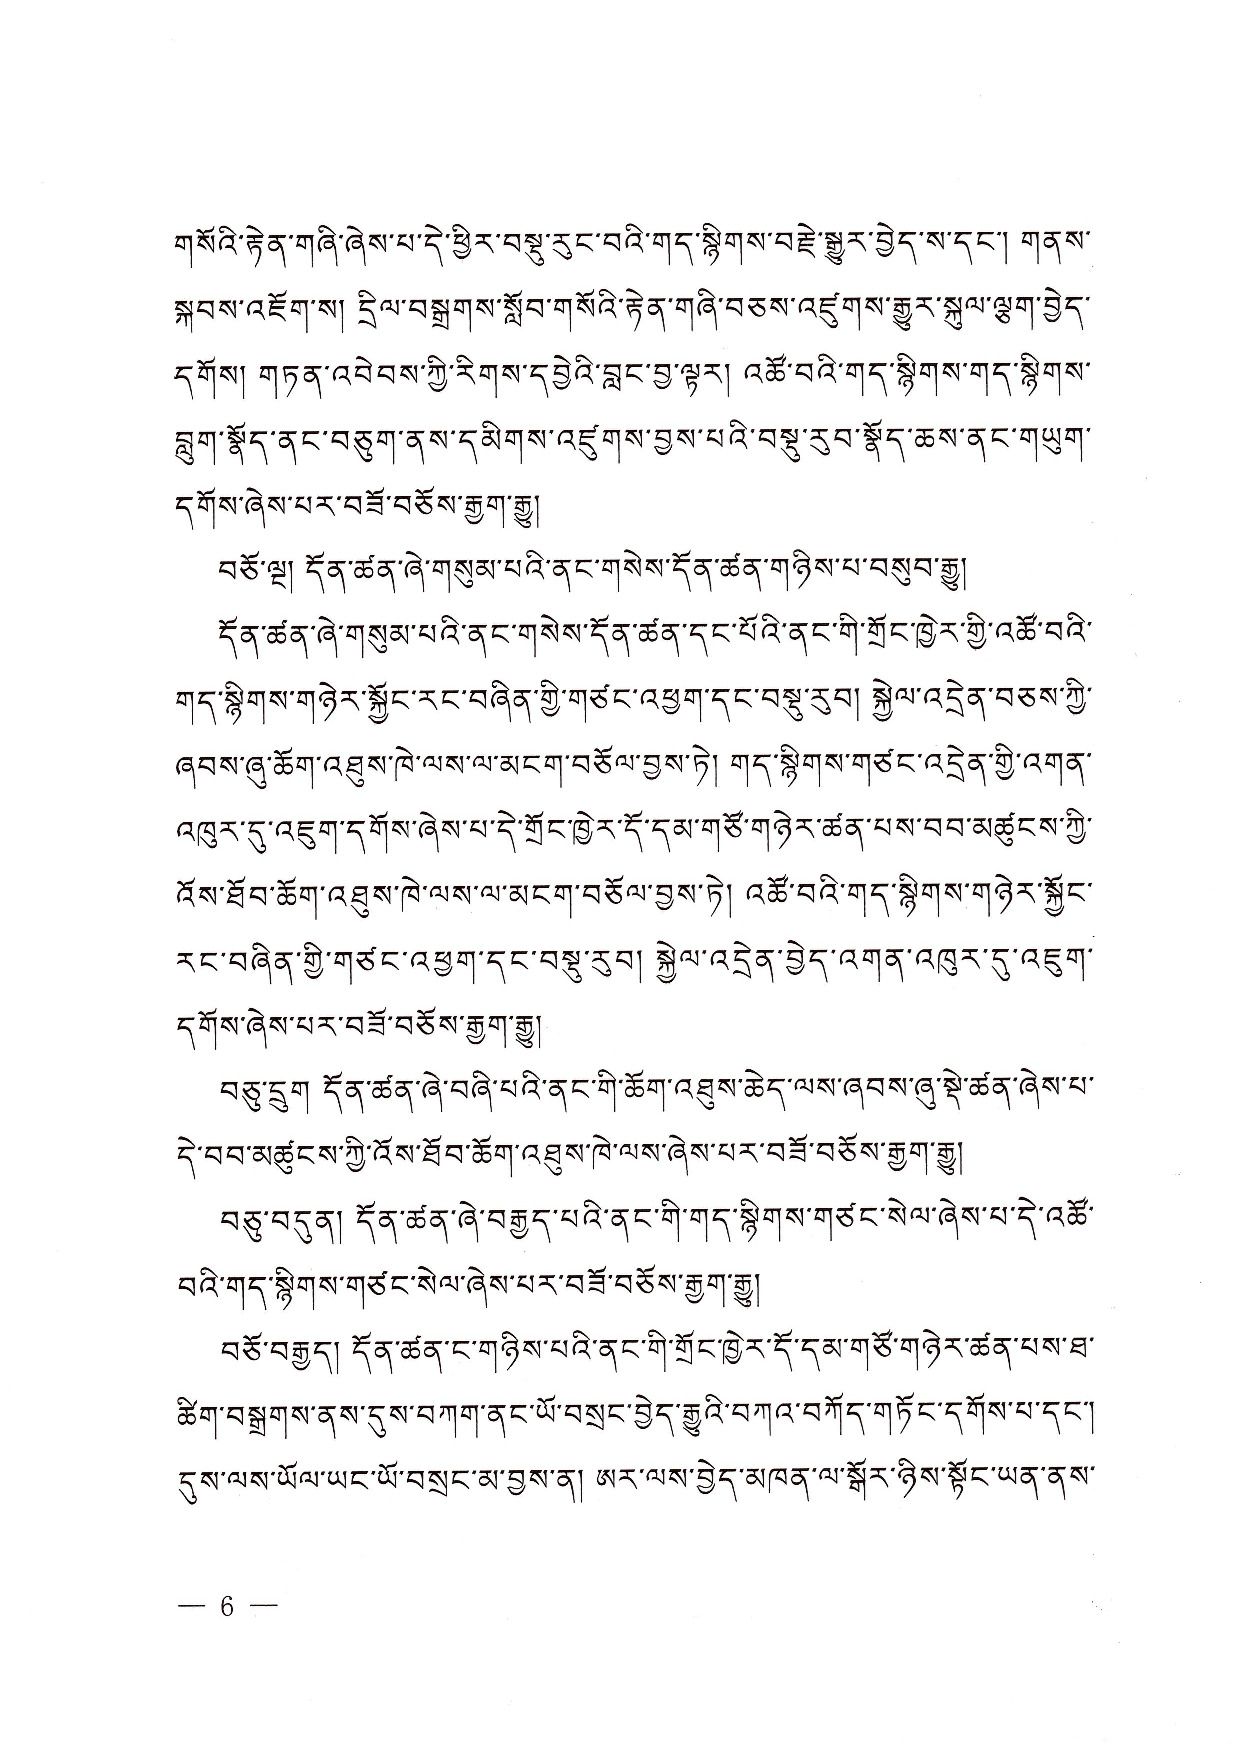 གསོའི་རྟེན་གཞི་ཞེས་པ་དེ་ཕྱིར་བསྡུ་རུང་བའི་གད་སྙིགས་བརྗེ་སྒྱུར་བྱེད་ས་དང་། གནས་
སྐབས་འཇོག་ས། དྲིལ་བསྒྲགས་སློབ་གསོའི་རྟེན་གཞི་བཅས་འཛུགས་རྒྱུར་སྐུལ་ལྕག་བྱེད་
དགོས། གཏན་འབེབས་ཀྱི་རིགས་དབྱེའི་བླང་བྱ་ལྟར། འཚོ་བའི་གད་སྙིགས་གད་སྙིགས་
བླུག་སྣོད་ནང་བཅུག་ནས་དམིགས་འཛུགས་བྱས་པའི་བསྡུ་རུབ་སྣོད་ཆས་ནང་གཡུག་
དགོས་ཞེས་པར་བཟོ་བཅོས་རྒྱག་རྒྱུ།
བཅོ་ལྔ། དོན་ཚན་ཞེ་གསུམ་པའི་ནང་གསེས་དོན་ཚན་གཉིས་པ་བསུབ་རྒྱུ།
དོན་ཚན་ཞེ་གསུམ་པའི་ནང་གསེས་དོན་ཚན་དང་པོའི་ནང་གི་གྲོང་ཁྱེར་གྱི་འཚོ་བའི་
གད་སྙིགས་གཉེར་སྐྱོང་རང་བཞིན་གྱི་གཙང་འཕྱག་དང་བསྡུ་རུབ། སྐྱེལ་འདྲེན་བཅས་ཀྱི་
ཞབས་ཞུ་ཆོག་འཐུས་ཁེ་ལས་ལ་མངག་བཅོལ་བྱས་ཏེ། གད་སྙིགས་གཙང་འདྲེན་གྱི་འགན་
འཁུར་དུ་འཇུག་དགོས་ཞེས་པ་དེ་གྲོང་ཁྱེར་དོ་དམ་གཙོ་གཉེར་ཚན་པས་བབ་མཚུངས་ཀྱི་
འོས་ཐོབ་ཆོག་འཐུས་ཁེ་ལས་ལ་མངག་བཅོལ་བྱས་ཏེ། འཚོ་བའི་གད་སྙིགས་གཉེར་སྐྱོང་
རང་བཞིན་གྱི་གཙང་འཕྱག་དང་བསྡུ་རུབ། སྐྱེལ་འདྲེན་བྱེད་འགན་འཁུར་དུ་འཇུག་
དགོས་ཞེས་པར་བཟོ་བཅོས་རྒྱག་རྒྱུ།
བཅུ་དྲུག དོན་ཚན་ཞེ་བཞི་པའི་ནང་གི་ཆོག་འཐུས་ཆེད་ལས་ཞབས་ཞུ་སྡེ་ཚན་ཞེས་པ་
དེ་བབ་མཚུངས་ཀྱི་འོས་ཐོབ་ཆོག་འཐུས་ཁེ་ལས་ཞེས་པར་བཟོ་བཅོས་རྒྱག་རྒྱུ།
བཅུ་བདུན། དོན་ཚན་ཞེ་བརྒྱད་པའི་ནང་གི་གད་སྙིགས་གཙང་སེལ་ཞེས་པ་དེ་འཚོ་
བའི་གད་སྙིགས་གཙང་སེལ་ཞེས་པར་བཟོ་བཅོས་རྒྱག་རྒྱུ།
བཅོ་བརྒྱད། དོན་ཚན་ང་གཉིས་པའི་ནང་གི་གྲོང་ཁྱེར་དོ་དམ་གཙོ་གཉེར་ཚན་པས་ཐ་
ཚིག་བསྒྲགས་ནས་དུས་བཀག་ནང་ཡོ་བསྲང་བྱེད་རྒྱུའི་བཀའ་བཀོད་གཏོང་དགོས་པ་དང་།
དུས་ལས་ཡོལ་ཡང་ཡོ་བསྲང་མ་བྱས་ན། ཨར་ལས་བྱེད་མཁན་ལ་སྒོར་ཉིས་སྟོང་ཡན་ནས་
— 6 —